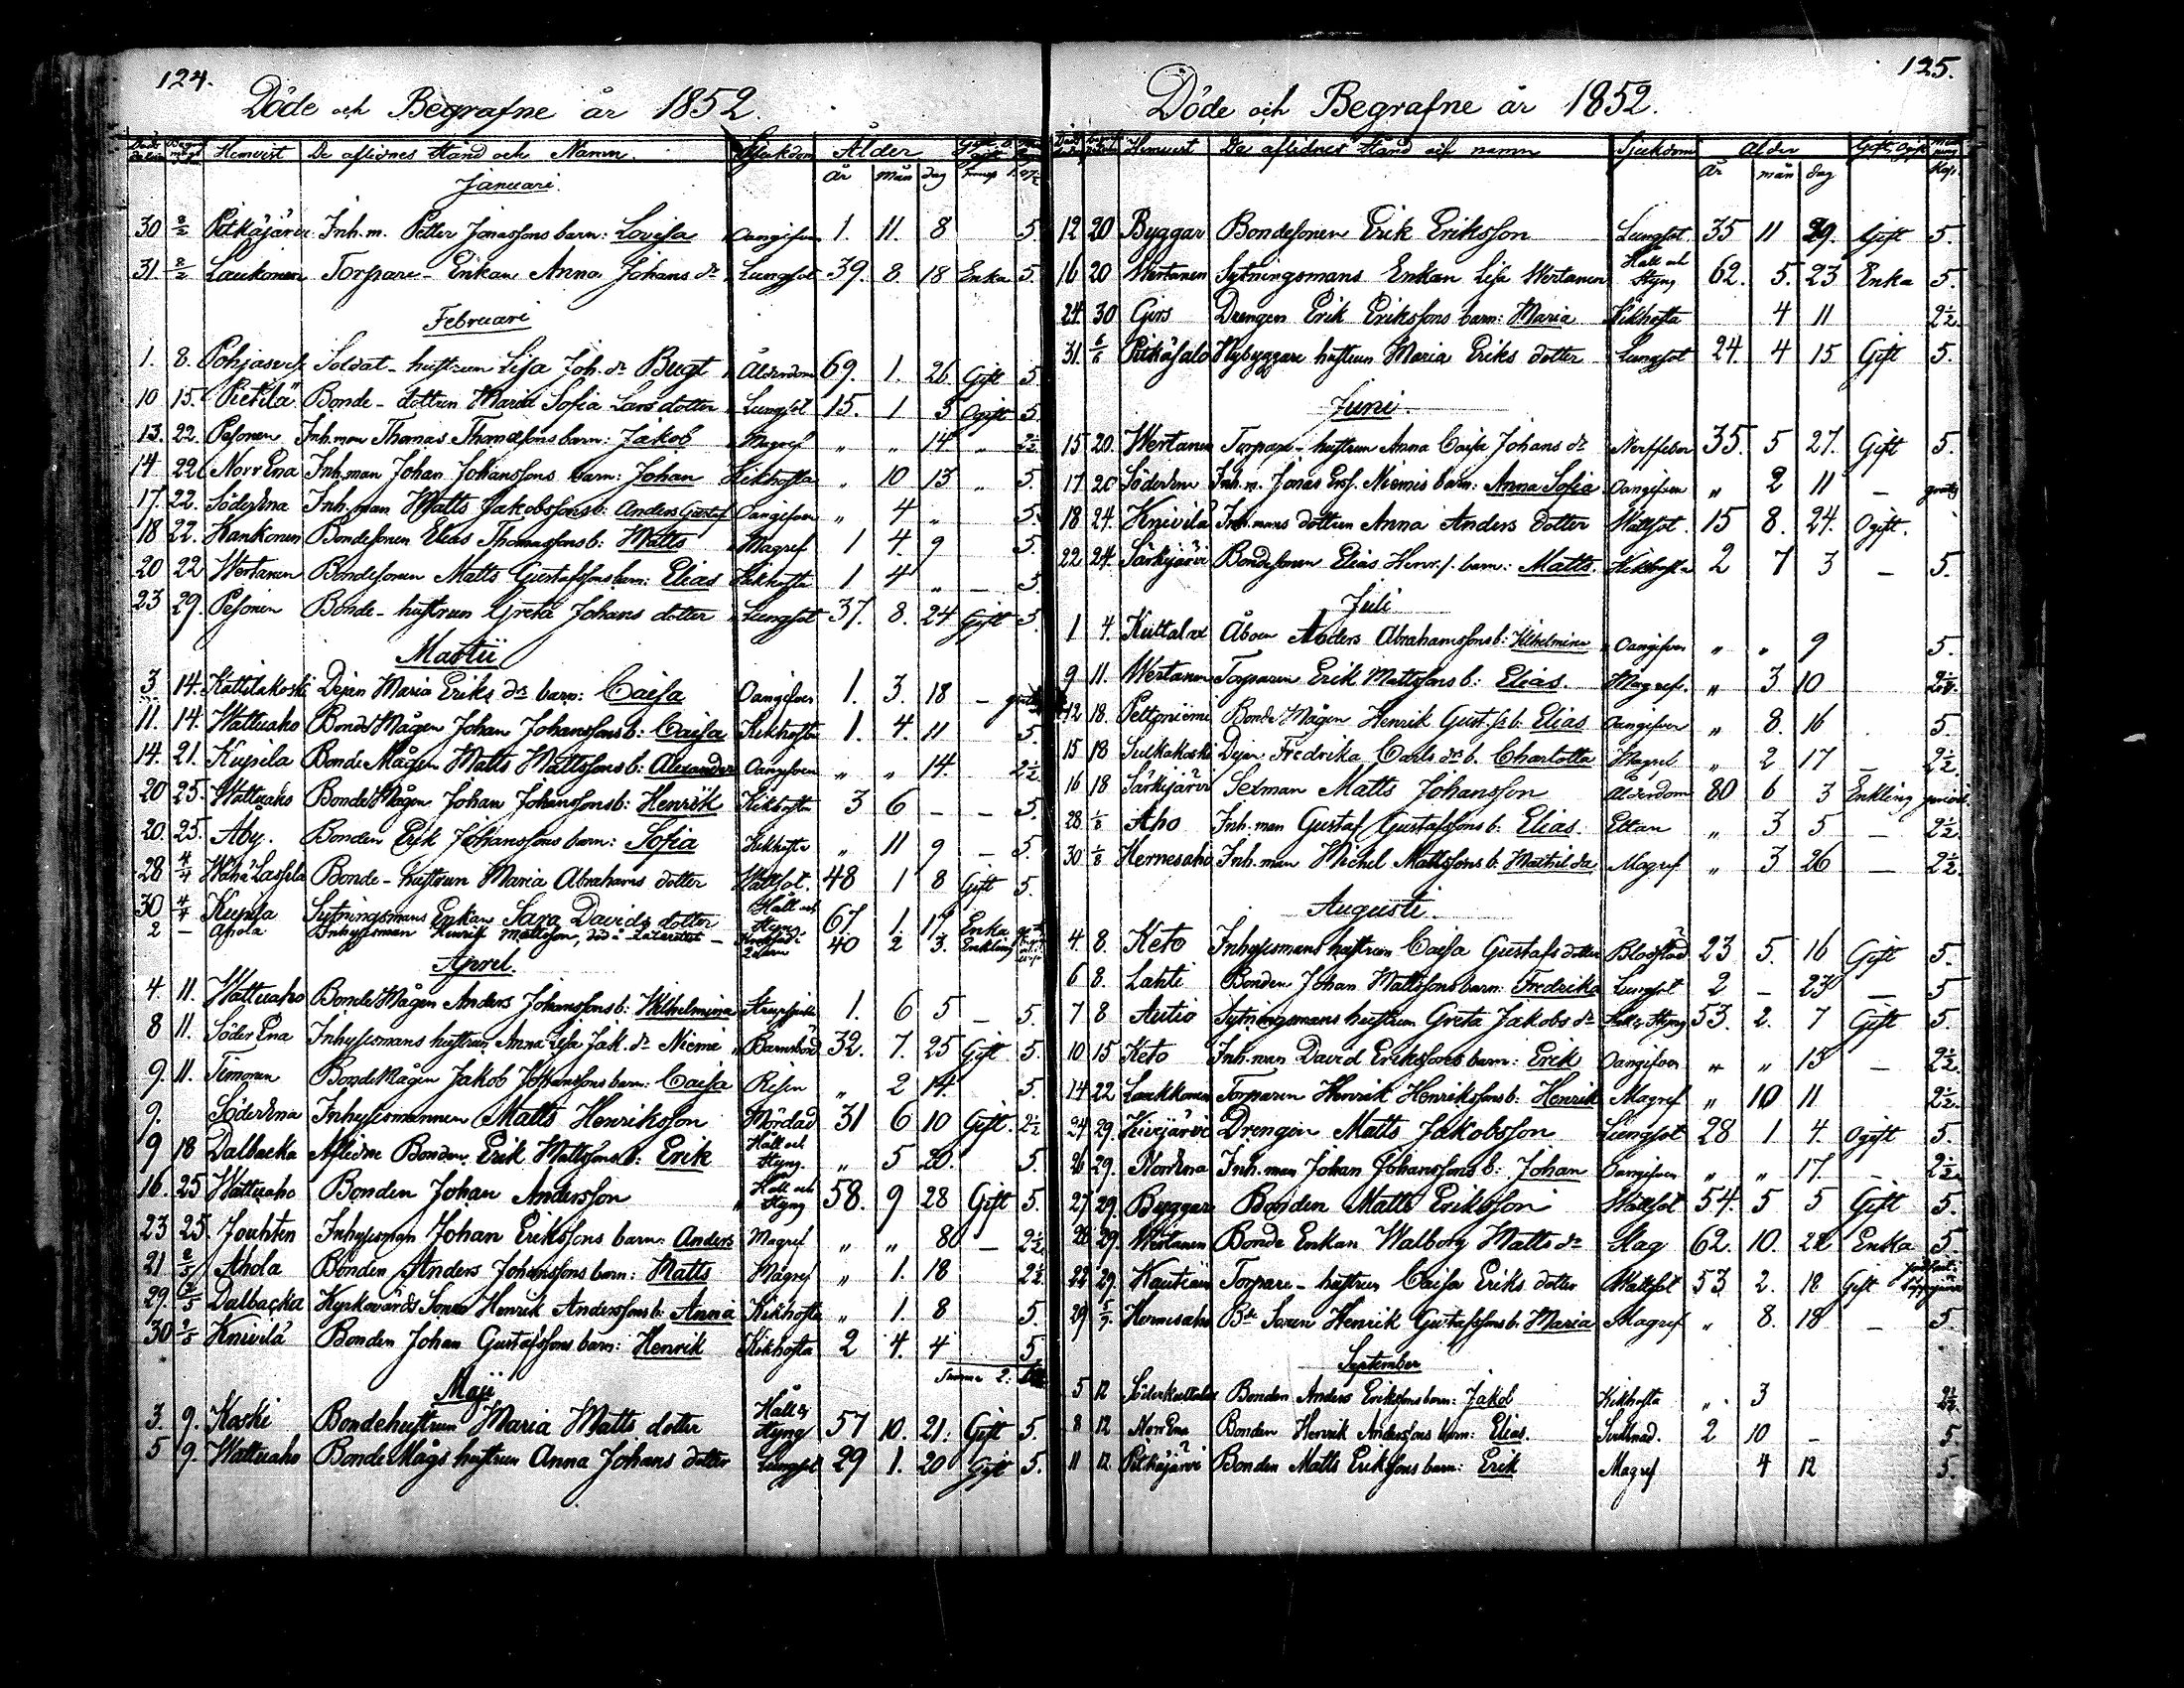 124.
Döde och Begrafne år 1852.
Hemvist De aflidnes Stånd och Namn. Sjukdom Ålder
år mån dag
Januari.
30 8/2 Pitkäjärvi Inh.m. Petter Jonassons barn: Lovisa Oangifven 1. 11. 8 5.
31. 8/2 Laukonen Torpare-Enkan Anna Johans dr Lungsot 39. 8. 18 Enka 5.
Februari
1. 8. Soldat-hustrun Lisa Joh. dr Bugt Ålderdom 69. 1. 26 Gift 5.
10 15. Pietilä Bonde-dottren Maria Sofia Lars dotter Lungsot 15. 1 5 Ogift 5.
13. 22. Pesonen Inh.man Thomas Thomassons barn: Jakob Magref " " 14 " 2½
14 22 Norr Ena Inh.man Johan Johanssons barn: Johan Kikhosta " 10 13 " 5.
17. 22. Söder Ena Inh.man Matts Jakobssons b: Anders Gustaf Oangifven " 4 " 5.
18 22. Hankonen Bondesonen Elias Thomassons b: Matts Magref 1 4. 9 5.
20 22 Wertanen Bondesonen Matts Gustafssons barn: Elias Kikhosta 1 4 " – 5.
23 29. Pesonen Bonde-hustrun Greta Johans dotter Lungsot 37. 8. 24 Gift 5.
Martii
3. 14. Kattilakoski Dejan Maria Eriks dr barn: Caisa Oangifven 1. 3. 18 – gratis
11. 14. Wattuaho Bonde Mågen Johan Johanssons b: Caisa Kikhosta 1. 4. 11 5.
14. 21. Kupila Bonde Mågen Matts Mattssons b: Alexander Oangifven " " 14. 2½
20 25. Wattuaho Bonde Mågen Johan Johanssons b: Henrik Kikhosta 3 6 – – 5.
20. 25. Aby. Bonden Erik Johanssons barn: Sofia Kikhosta " 11 9 – 5.
28 4/4 Wähä Lassila Bonde-hustrun Maria Abrahams dotter Wattsot. 48 1 8 Gift 5.
30 4/4 Kupila Sytningsmans Enkan Sara Davids dotter Håll och Styng 67. 1. 17. Enka
2 – Ahola Inhysesman Henrik Mattsson, död å Lazarettet – 40 2 3. Enkling
Aprel.
4. 11. Wattuaho Bonde Mågen Anders Johanssons b: Wilhelmina Strupsjuka 1. 6 5 – 5.
8 11. Söder Ena Inhysesmans hustrun Anna Lisa Jak. dr Niemi Barnsbörd 32. 7. 25 Gift 5.
9. 11. Timonen Bonde Mågen Jakob Johanssons barn: Caisa Risen " 2 14. 5.
9. Söder Ena Inhysesmannen Matts Henriksson Mördad 31 6 10 Gift. 2½
9 18 Dalbacka Aflidne Bonden Erik Mattssons b: Erik Håll och Styng. " 5 20. 5.
16. 25 Wattuaho Bonden Johan Andersson Håll och Styng 58. 9 28 Gift 5.
23 25. Jouhten Inhysesman Johan Erikssons barn: Anders Magref " " 8 – 2½
21 2/5 Ahola Bonden Anders Johanssons barn: Matts Magref " 1. 18 2½
29. 2/5 Dalbacka Kyrkovärds Sonen Henrik Anderssons b: Anna Kikhosta " 1. 8 5.
30 2/5 Knivilä Bonden Johan Gustafssons barn: Henrik Kikhosta 2 4. 4 5
Summa 2:
Maji
3. 9. Koski Bondehustrun Maria Matts dotter Håll & Styng 57 10. 21. Gift 5.
5 9. Wattuaho Bonde Mågs hustrun Anna Johans dotter Lungsot 29 1. 20 Gift 5.
125.
Döde och Begrafne år 1852.
Hemvist De aflidnes Stånd och namn Sjukdom Ålder Gift, Ogift
År mån dag Kop.
12 20 Byggar Bondesonen Erik Eriksson Lungsot. 35 11 29. Gift 5.
16 20 Wertanen Sytningsmans Enkan Lisa Wertanen Håll och Styng 62. 5. 23 Enka 5.
24. 30 Girs Drengen Erik Erikssons barn: Maria Kikhosta 4 11 2½
31. 6/6 Pitkäsalo Nybyggare hustrun Maria Eriks dotter Lungsot 24. 4 15 Gift 5.
Juni.
15 20. Wertanen Torpare-hustrun Anna Caisa Johans dr Nerffeber 35. 5 27. Gift 5.
17 20 Söder Ena Inh.m. Jonas Ers. Niemis barn: Anna Sofia Oangifven " 2 11 – gratis
18 24. Knivilä Inh.mans dottren Anna Anders dotter Wattsot. 15 8. 24. Ogift.
22 24. Särkijärvi Bondesonen Elias Henr.s. barn: Matts. Kikhosta 2 7 3 – 5.
Juli
1 4. Kuttalax Åboen Anders Abrahamssons b: Wilhelmina Oangifven " " 9 5.
9 11. Wertanen Torparen Erik Mattssons b: Elias. Magref. " 3 10 2½
12 18. Peltoniemi Bonde Mågen Henrik Gust.s. b: Elias Oangifven " 8. 16 5.
15 18 Sulkakoski Dejan Fredrika Carls dr b. Charlotta Magref " 2 17 – 2½
16 18 Särkijärvi Sexman Matts Johansson Ålderdom 80 6 3 Enkling
28 1/8 Aho Inh.man Gustaf Gustafssons b: Elias. Eltan " 3 5 – 2½
30 1/8 Hernesaho Inh.man Michel Mattssons b. Mathilda Magref " 3 26 – 2½
Augusti.
4. 8. Keto Inhysesmans hustrun Caisa Gustafs dotter 23 5. 16 Gift 5.
6 8. Lahti Bonden Johan Mattssons barn: Fredrika Lungsot 2 – 23 – 5
7 8 Autio Sytningsmans hustrun Greta Jakobs dr Håll & Styng 53. 2. 7 Gift 5.
10 15 Keto Inh.man David Erikssons barn: Erik Oangifven " " 15 – 2½
14 22 Laakkonen Torparen Henrik Henrikssons b: Henrik Magref " 10 11 2½
24 29. Kivijärvi Drengen Matts Jakobsson Lungsot 28 1 4. Ogift 5.
26 29. Norr Ena Inh.man Johan Johanssons b: Johan Oangifven " " 17. – 2½
27 29. Byggar Bonden Matts Eriksson Wattsot 54. 5 5 Gift 5.
28 29. Wertanen Bonde Enkan Walborg Matts dr Slag 62. 10. 22 Enka 5.
22 29. Kautiain Torpare-hustrun Caisa Eriks dotter Wattsot 53 2. 18 Gift
29 5/9 Hernesaho Bde Sonen Henrik Gustafssons b. Maria Magref " 8. 18 – 5.
September
5 12 Söderkuttalax Bonden Anders Erikssons barn: Jakob Kikhosta " 3 2½
8 12 Norr Ena Bonden Henrik Anderssons barn: Elias. 2 10 – 5.
11 12 Pitkäjärvi Bonden Matts Erikssons barn: Erik Magref 4 12 5.